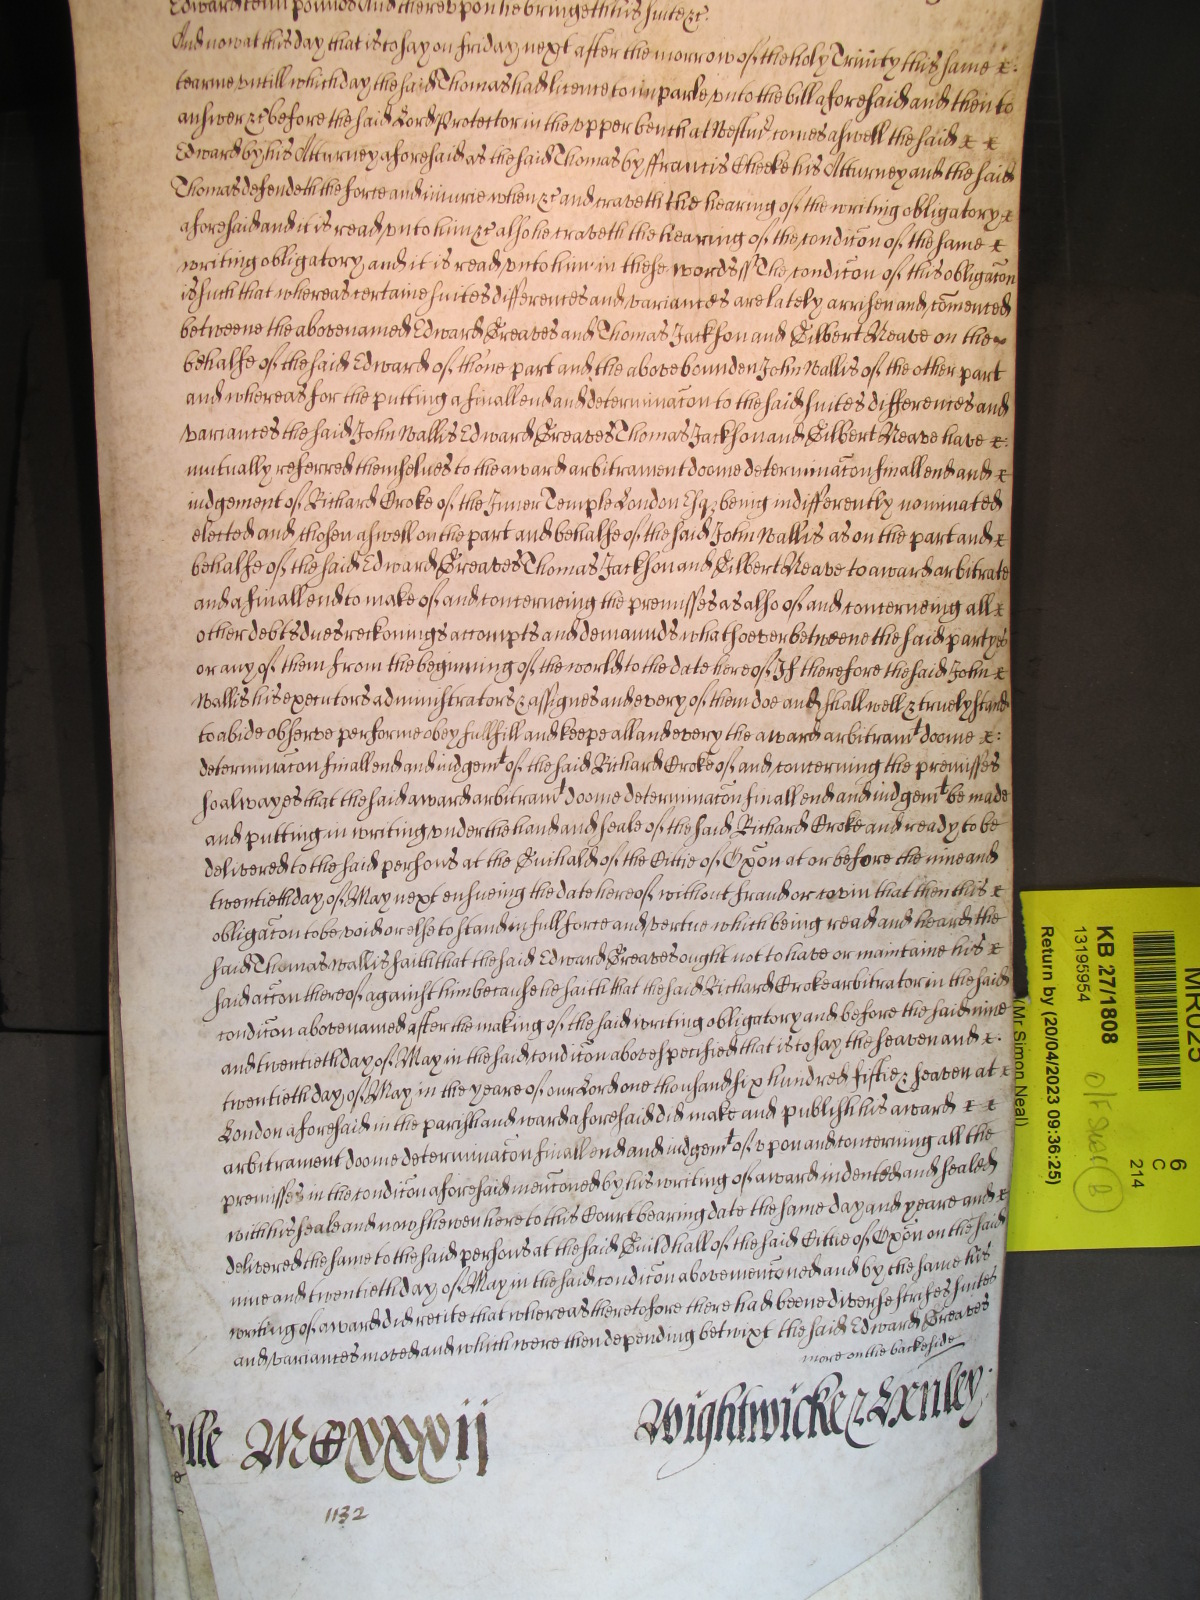 Edward tenn pounds And thereupon he bringeth his suite &c.
And now at this day that is to say on friday next after the morrow of the holy Trinity this same x.
tearme untill which day the said Thomas had licence to imparle unto the bill aforesaid and then to
answer &c before the said Lord Protector in the upper bench at Westmr comes aswell the said x x
Edward by his Atturney aforesaid as the said Thomas by ffrancis Cheeke his Atturney and the said
Thomas defendeth the force and iniurie when &c and craveth the hearing of the writing obligatory x
aforesaid and it is read unto him &c also he craveth the hearing of the condicon of the same x
writing obligatory and it is read unto him in these words ss The condicon of this obligacon
is such that whereas certaine suites differences and variances are lately arrisen and comenced
betweene the abovenamed Edward Greaves and Thomas Jackson and Gilbert Neave on the
behalfe of the said Edward of thone part and the above bounden John Wallis of the other part
and whereas for the putting a finall end and determinacon to the said suites differences and
variances the said John Wallis Edward Greaves Thomas Jackson and Gilbert Neave have x:
mutually referred themselves to the award arbitrament doome determinacon finall end and x
iudgement of Richard Croke of the Inner Temple London Esqr being indifferently nominated
elected and chosen aswell on the part and behalfe of the said John Wallis as on the part and x
behalfe of the said Edward Greaves Thomas Jackson and Gilbert Neave to award arbitrate
and a finall end to make of and concerneing the premisses as also of and concerneing all x
other debts dues reckonings accompts and demaunds whatsoever betweene the said partyes
or any of them from the beginning of the world to the date hereof If therefore the said John x
Wallis his executors administrators & assignes and every of them doe and shall well & truely stand
to abide observe performe obey fullfill and keepe all and every the award arbitramt doome x:
determinacon finall end and iudgemt of the said Richard Croke of and concerning the premisses
so alwayes that the said award arbitramt doome determinacon finall end and iudgemt be made
and putting in writing under the hand and seale of the said Richard Croke and ready to be
delivered to the said persons at the Guihald of the Cittie of Oxon at or before the nine and
twentieth day of May next ensueing the date hereof without fraud or covin that then this x
obligacon to be void or else to stand in full force and vertue which being read and heard the
said Thomas Wallis saith that the said Edward Greaves ought not to have or maintaine his x
said accon thereof against him because he saith that the said Richard Croke arbitrator in the said
condicon abovenamed after the making of the said writing obligatory and before the said nine
and twentieth day of May in the said condicon above specified that is to say the seaven and x.
twentieth day of May in the yeare of our Lord one thousand six hundred fiftie & seaven at x
London aforesaid in the parish and ward aforesaid did make and publish his award x x
arbitrament doome determinacon finall end and iudgemt of upon and concerning all the
premisses in the condicon aforesaid mencioned by his writing of award indented and sealed
with his seale and now shewen here to this Court bearing date the same day and yeare and x
delivered the same to the said persons at the said Guildhall of the said Cittie of Oxon on the said
nine and twentieth day of May in the said condicon abovemencioned and by the same his
writing of award did recite that whereas theretofore there had beene diverse strifes suites
and variances moved and which were then depending betwixt the said Edward Greaves
more on the backeside
olle MCxxxij
Wightwicke & Oxnley
1132
MR025
6
C
214
KB 27/1808
13195954
Return by (20/04/2023 09:36:25)
(Mr Simon Neal)